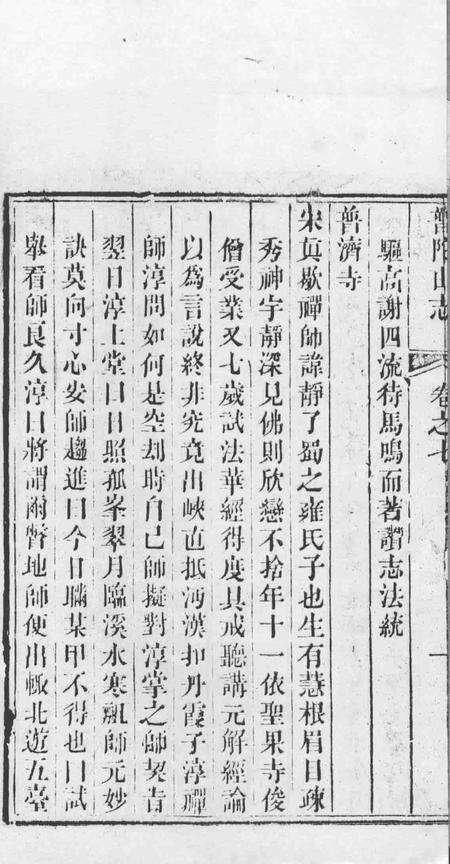 普陀山志　卷之七　一
驅高謝四流待馬鳴而著讚志法統
普濟寺
宋真歇禪師諱靜了蜀之雍氏子也生有慧根眉目疎
秀神宇靜深見佛則欣戀不捨年十一依聖果寺俊
僧受業又七歲試法華經得度具戒聽講元解經論
以為言說終非究竟出峽直抵沔漢扣丹霞子淳禪
師淳問如何是空刼時自己師擬對淳掌之師契旨
翌日淳上堂曰日照孤峯翠月臨溪水寒飄師元妙
訣莫向寸心安師趨進曰今日瞞某甲不得也曰試
舉看師良久淳曰將謂爾瞥地師便出檄北遊五臺